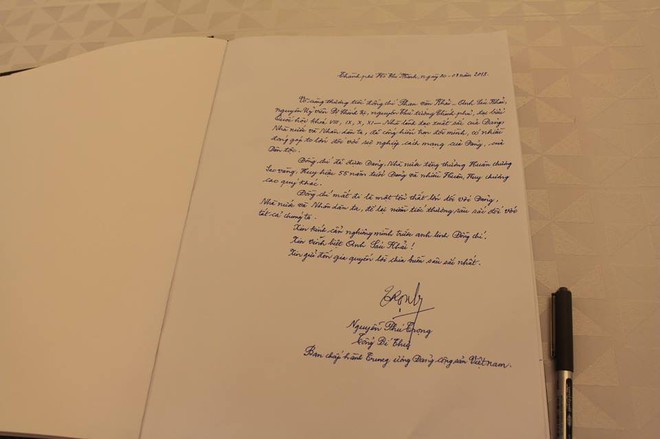 Thành phố Hồ Chí Minh, ngày 20-3 năm 2018.
Vô cùng thương tiếc đồng chí Phan Văn Khải - Anh Sáu Khải,
nguyên Uỷ viên Bộ Chính trị, nguyên Thủ tướng Chính phủ, đại biểu
Quốc hội khoá VIII, IX, X, XI - Nhà lãnh đạo xuất sắc của Đảng,
Nhà nước và Nhân dân ta, đã cống hiến trọn đời mình, có nhiều
đóng góp to lớn đối với sự nghiệp cách mạng của Đảng, của
Dân tộc.
Đồng chí đã được Đảng, Nhà nước tặng thưởng Huân chương
Sao vàng, Huy hiệu 55 năm tuổi Đảng và nhiều Huân, Huy chương
cao quý khác.
Đồng chí mất đi là một tổn thất lớn đối với Đảng,
Nhà nước và Nhân dân ta, để lại niềm tiếc thương sâu sắc đối với
tất cả chúng ta.
Xin kính cẩn nghiêng mình trước anh linh Đồng chí.
Xin vĩnh biệt Anh Sáu Khải!
Xin gửi đến gia quyến lời chia buồn sâu sắc nhất.
Nguyễn Phú Trọng
Tổng Bí Thư
Ban chấp hành Trung ương Đảng cộng sản Việt nam.